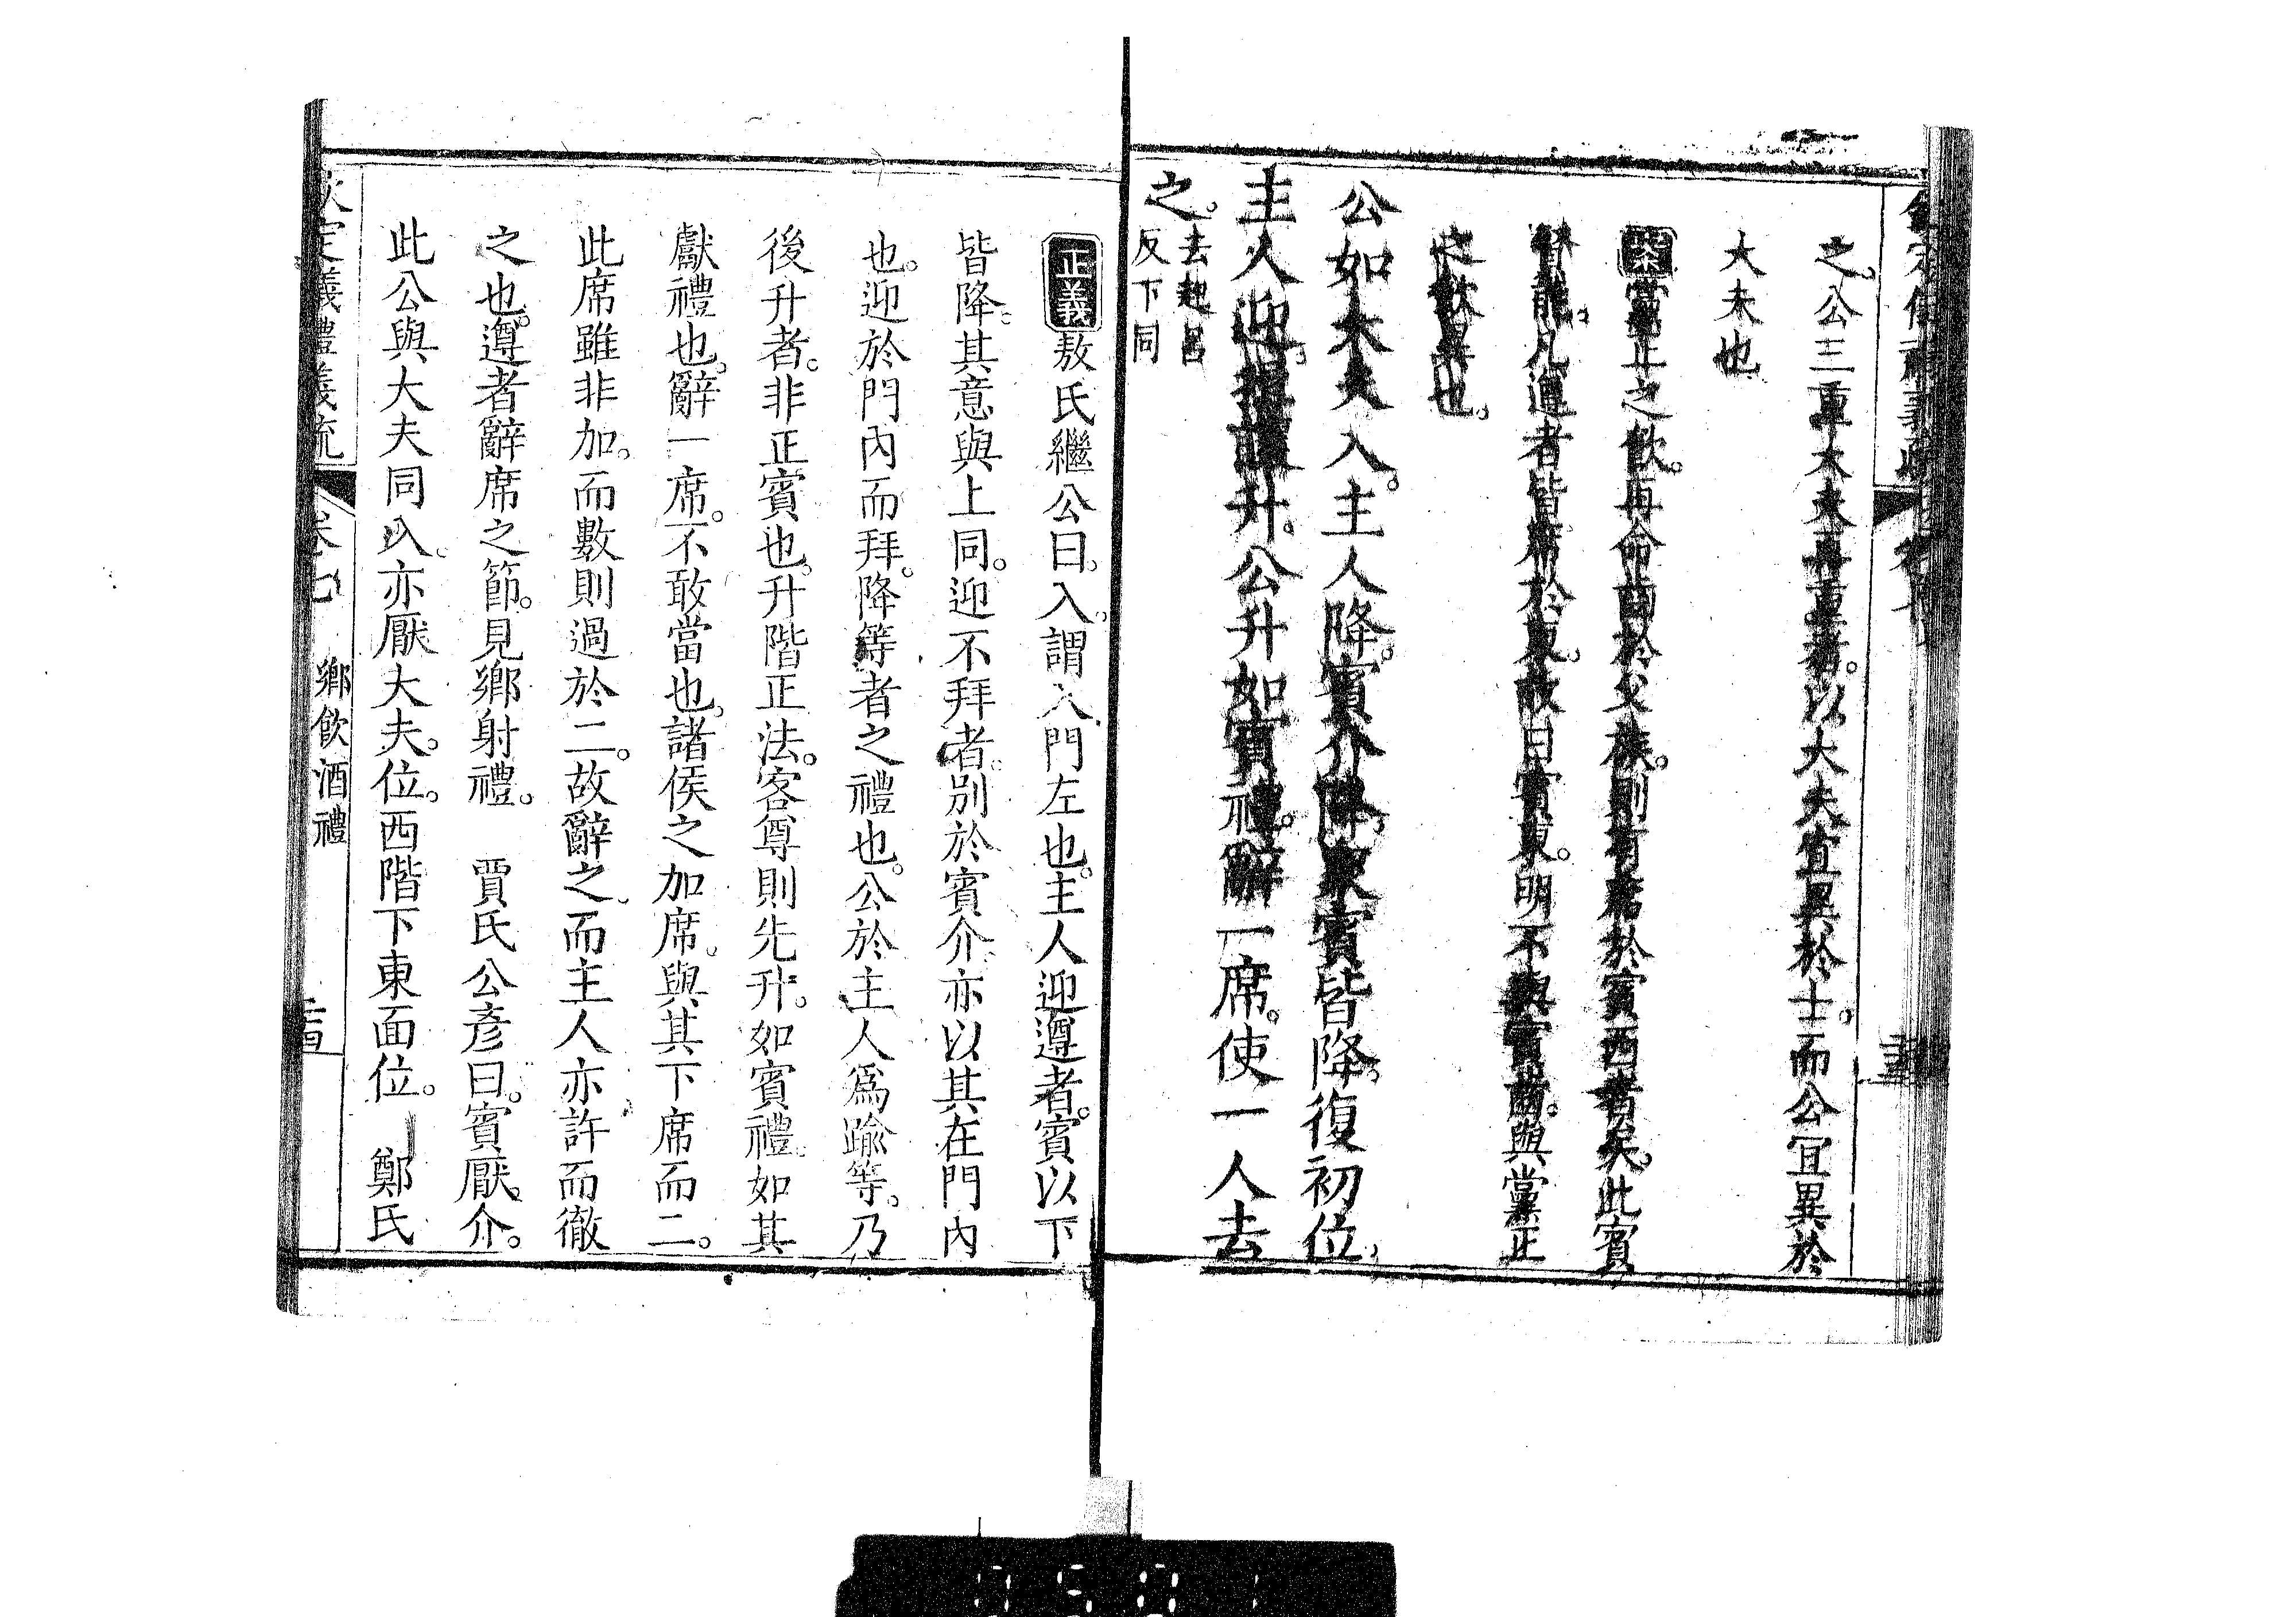 之。公三重大夫再重者。以大夫宜異於士。而公宜異於
大夫也
案黨正之飲。再命齒於父族。則有席於賓西者矣。此賓
賢能。凡遵者皆席於東。故曰賓東。明不與賓齒。與黨正
之飲異也。
公如大夫入。主人降。賓介降。衆賓皆降。復初位。
主人迎。揖讓升。公升如賓禮。辭一席。使一人去
之。去起呂
反下同
正義敖氏繼公曰。入。謂入門左也。主人迎遵者。賓以下
皆降。其意與上同。迎不拜者。別於賓介。亦以其在門內
也。迎於門內而拜。降等者之禮也。公於主人爲踰等。乃
後升者。非正賓也。升階正法。客尊則先升。如賓禮。如其
獻禮也。辭一席。不敢當也。諸侯之加席。與其下席而二。
此席雖非加。而數則過於二。故辭之。而主人亦許而徹
之也。遵者辭席之節。見鄉射禮。 賈氏公彥曰。賓厭介。
此公與大夫同入。亦厭大夫。位。西階下東面位。 鄭氏
欽定義禮義疏 卷七 鄉飲酒禮